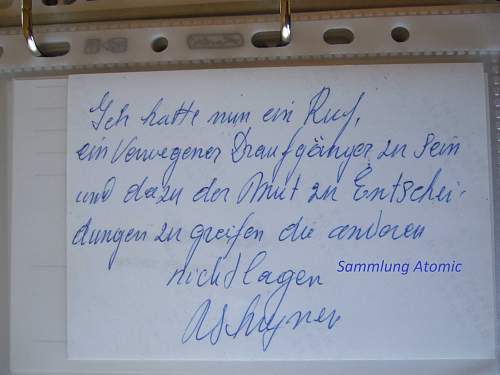 Ich hatte nun ein Ruf,
ein Verwegener Draufgänger zu sein
und dazu der Mut zu Entschei-
dungen zu greifen die anderen
nicht lagen
Sammlung Atomic